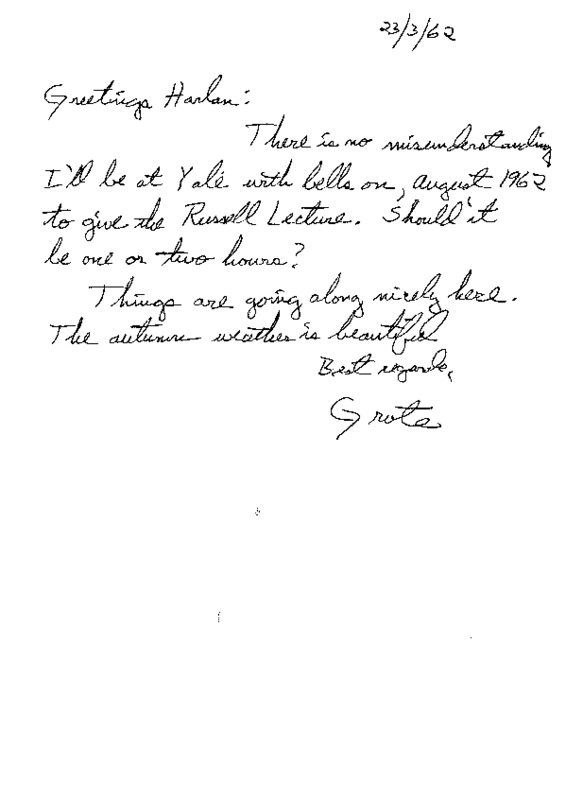 23/3/62
Greetings Harlan:
There is no misunderstanding
I'll be at Yale with bells on, August 1962
to give the Russell Lecture. Should it
be one or two hours?
Things are going along nicely here.
The autumn weather is beautiful
Best regards,
Grote